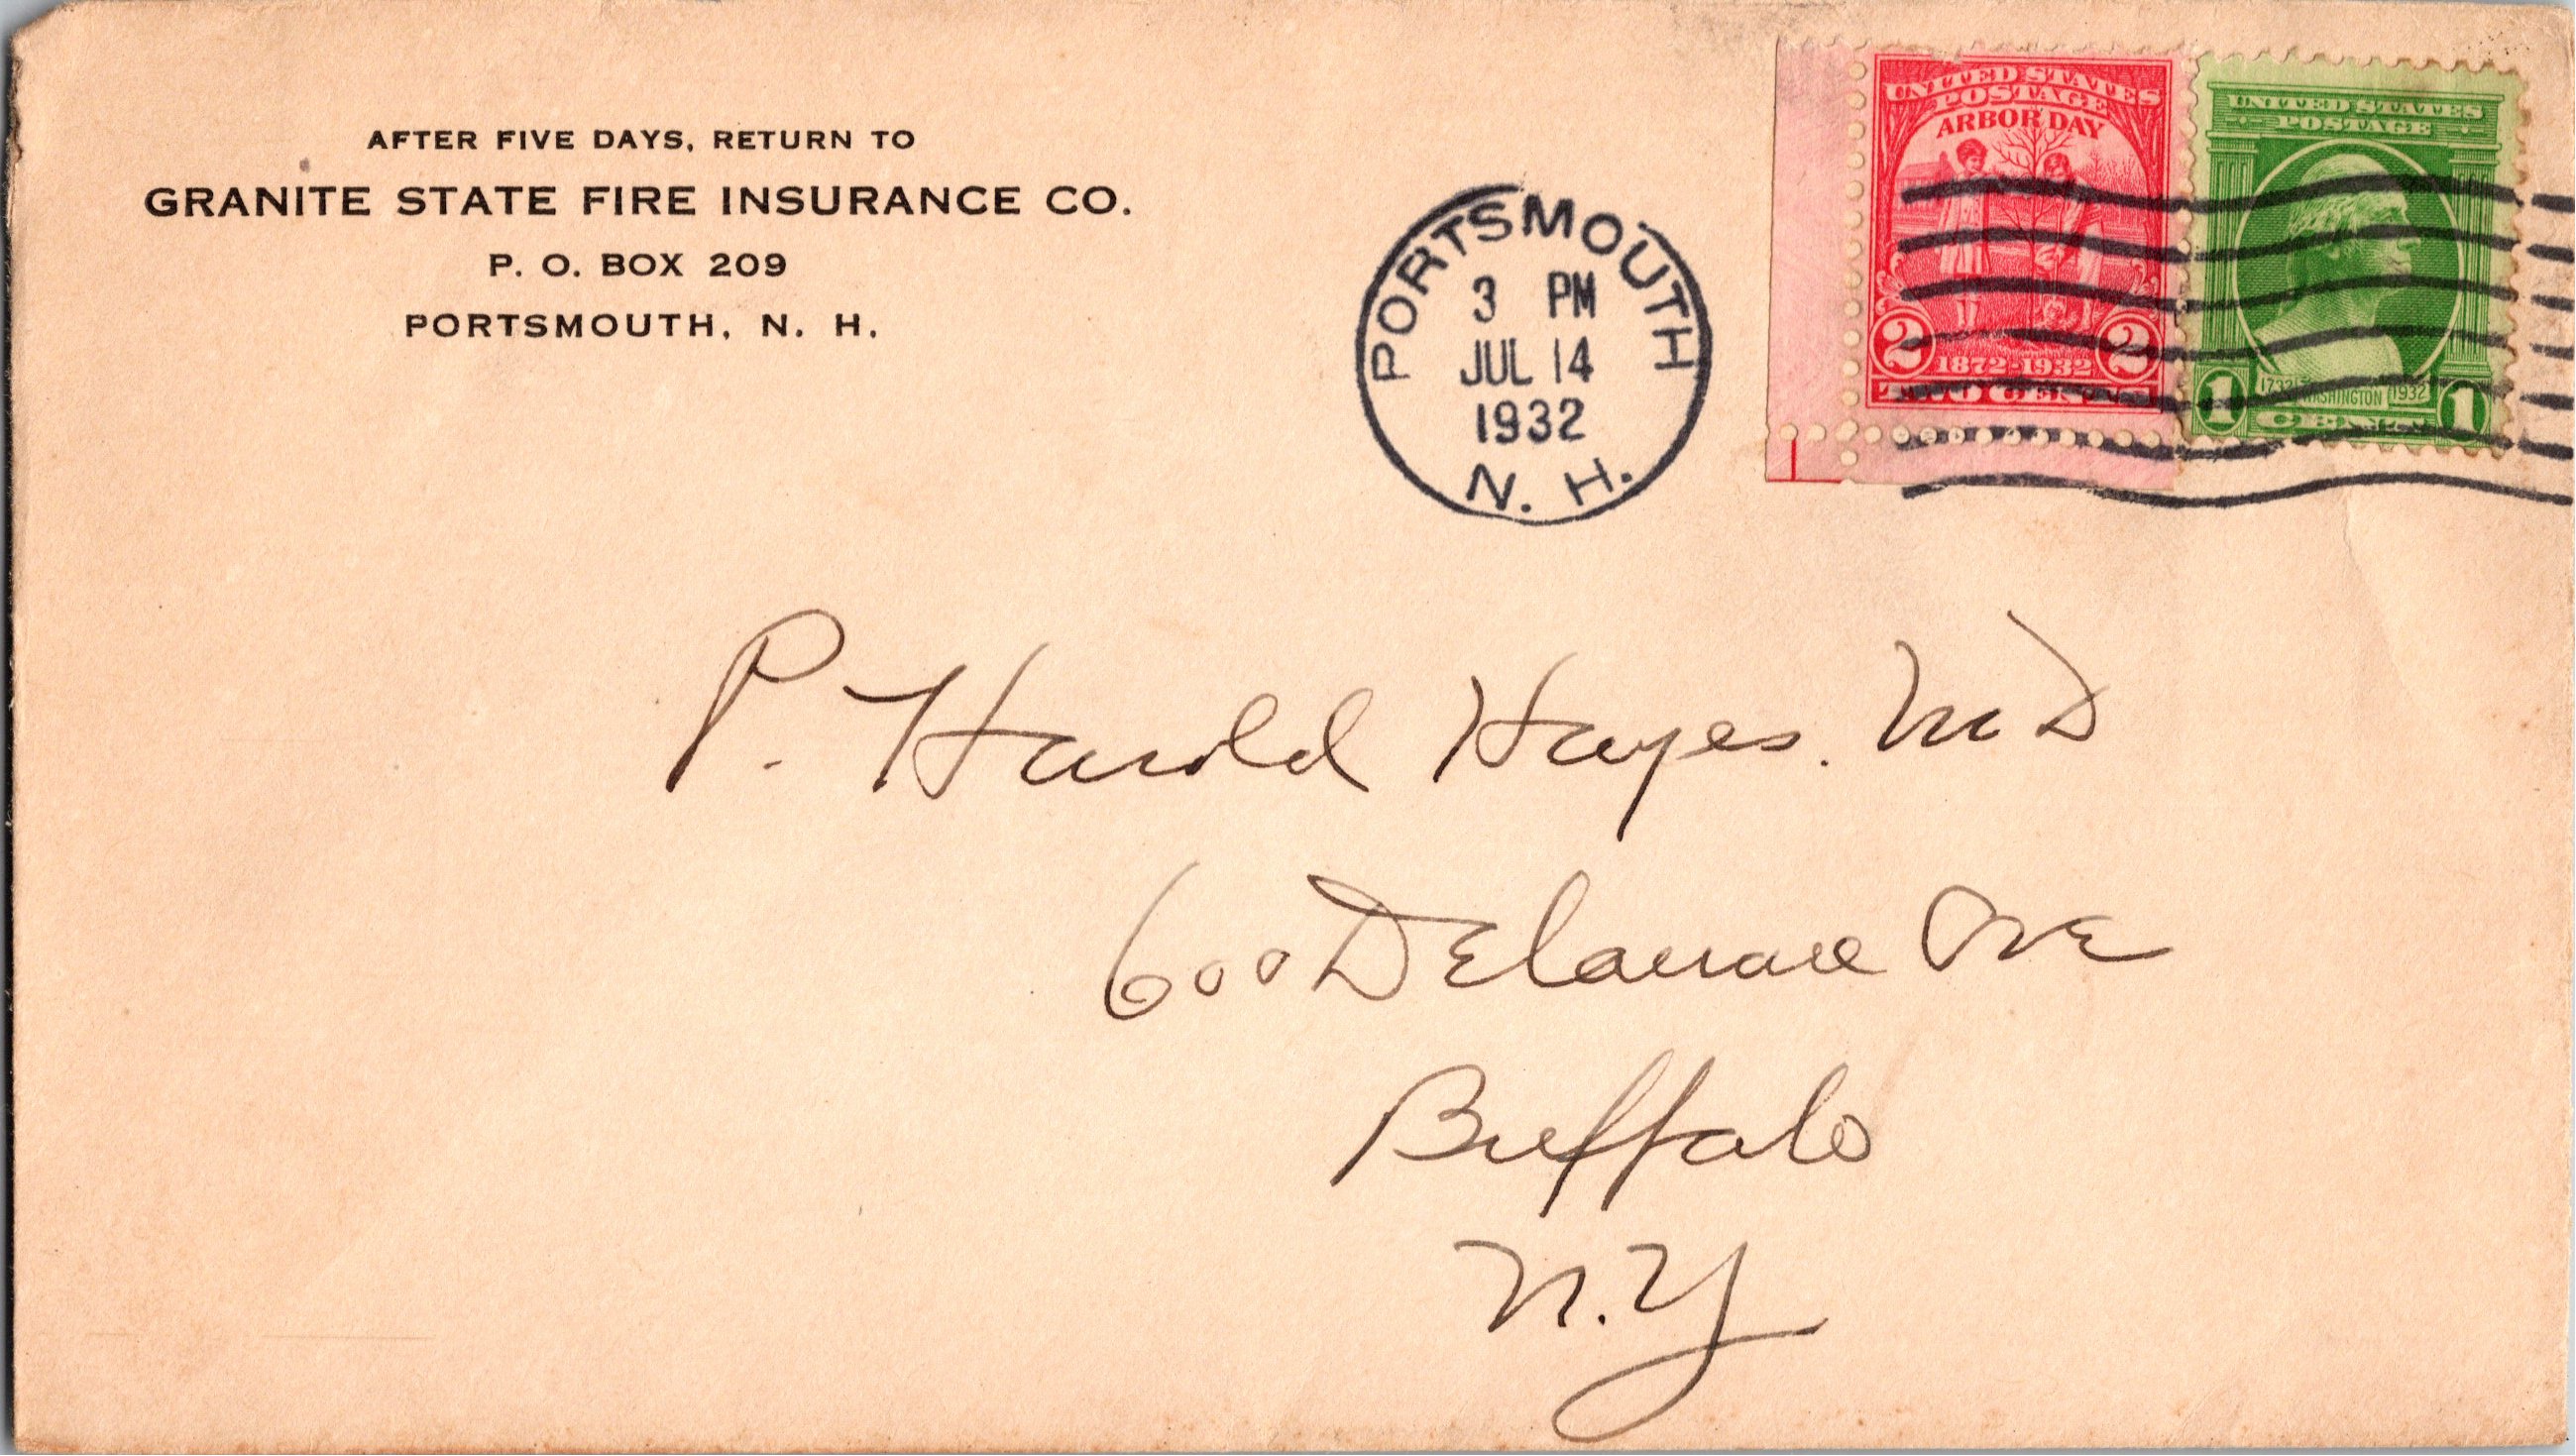 AFTER FIVE DAYS, RETURN TO
GRANITE STATE FIRE INSURANCE CO.
P. O. BOX 209
PORTSMOUTH, N. H.
PORTSMOUTH
3 PM
JUL 14
1932
N. H.
UNITED STATES
POSTAGE
ARBOR DAY
2 1872-1932 2
TWO CENTS
UNITED STATES
POSTAGE
1732 WASHINGTON 1932
1 CENT 1
P. Harold Hayes. MD
600 Delaware Ave
Buffalo
N.Y